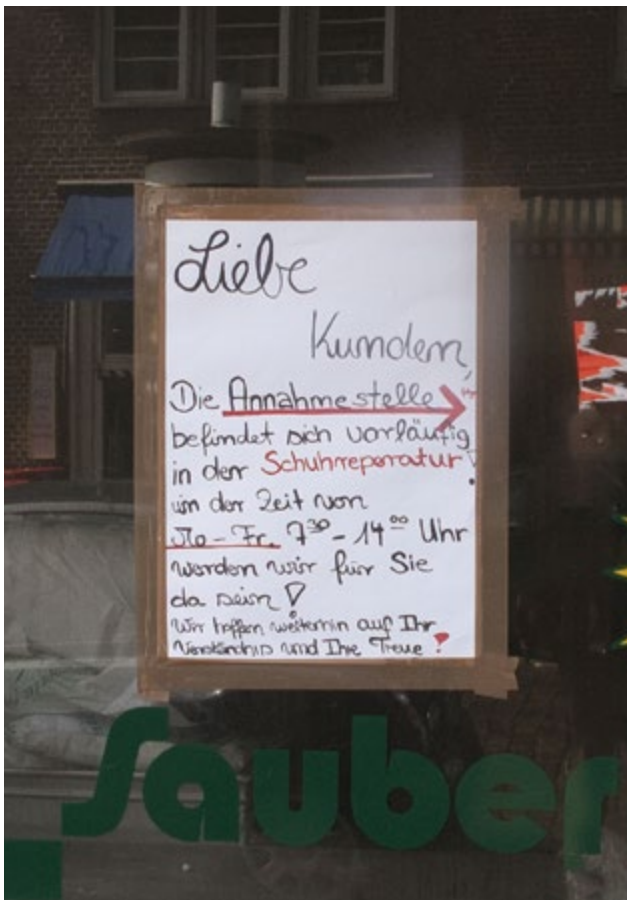 Liebe
Kunden,
Die Annahmestelle
befindet sich vorläufig
in der Schuhreperatur!
in der Zeit von
Mo - Fr. 7³⁰ - 14⁰⁰ Uhr
werden wir für Sie
da sein!
Wir hoffen weiterhin auf Ihr
Verständnis und Ihre Treue!
Sauber